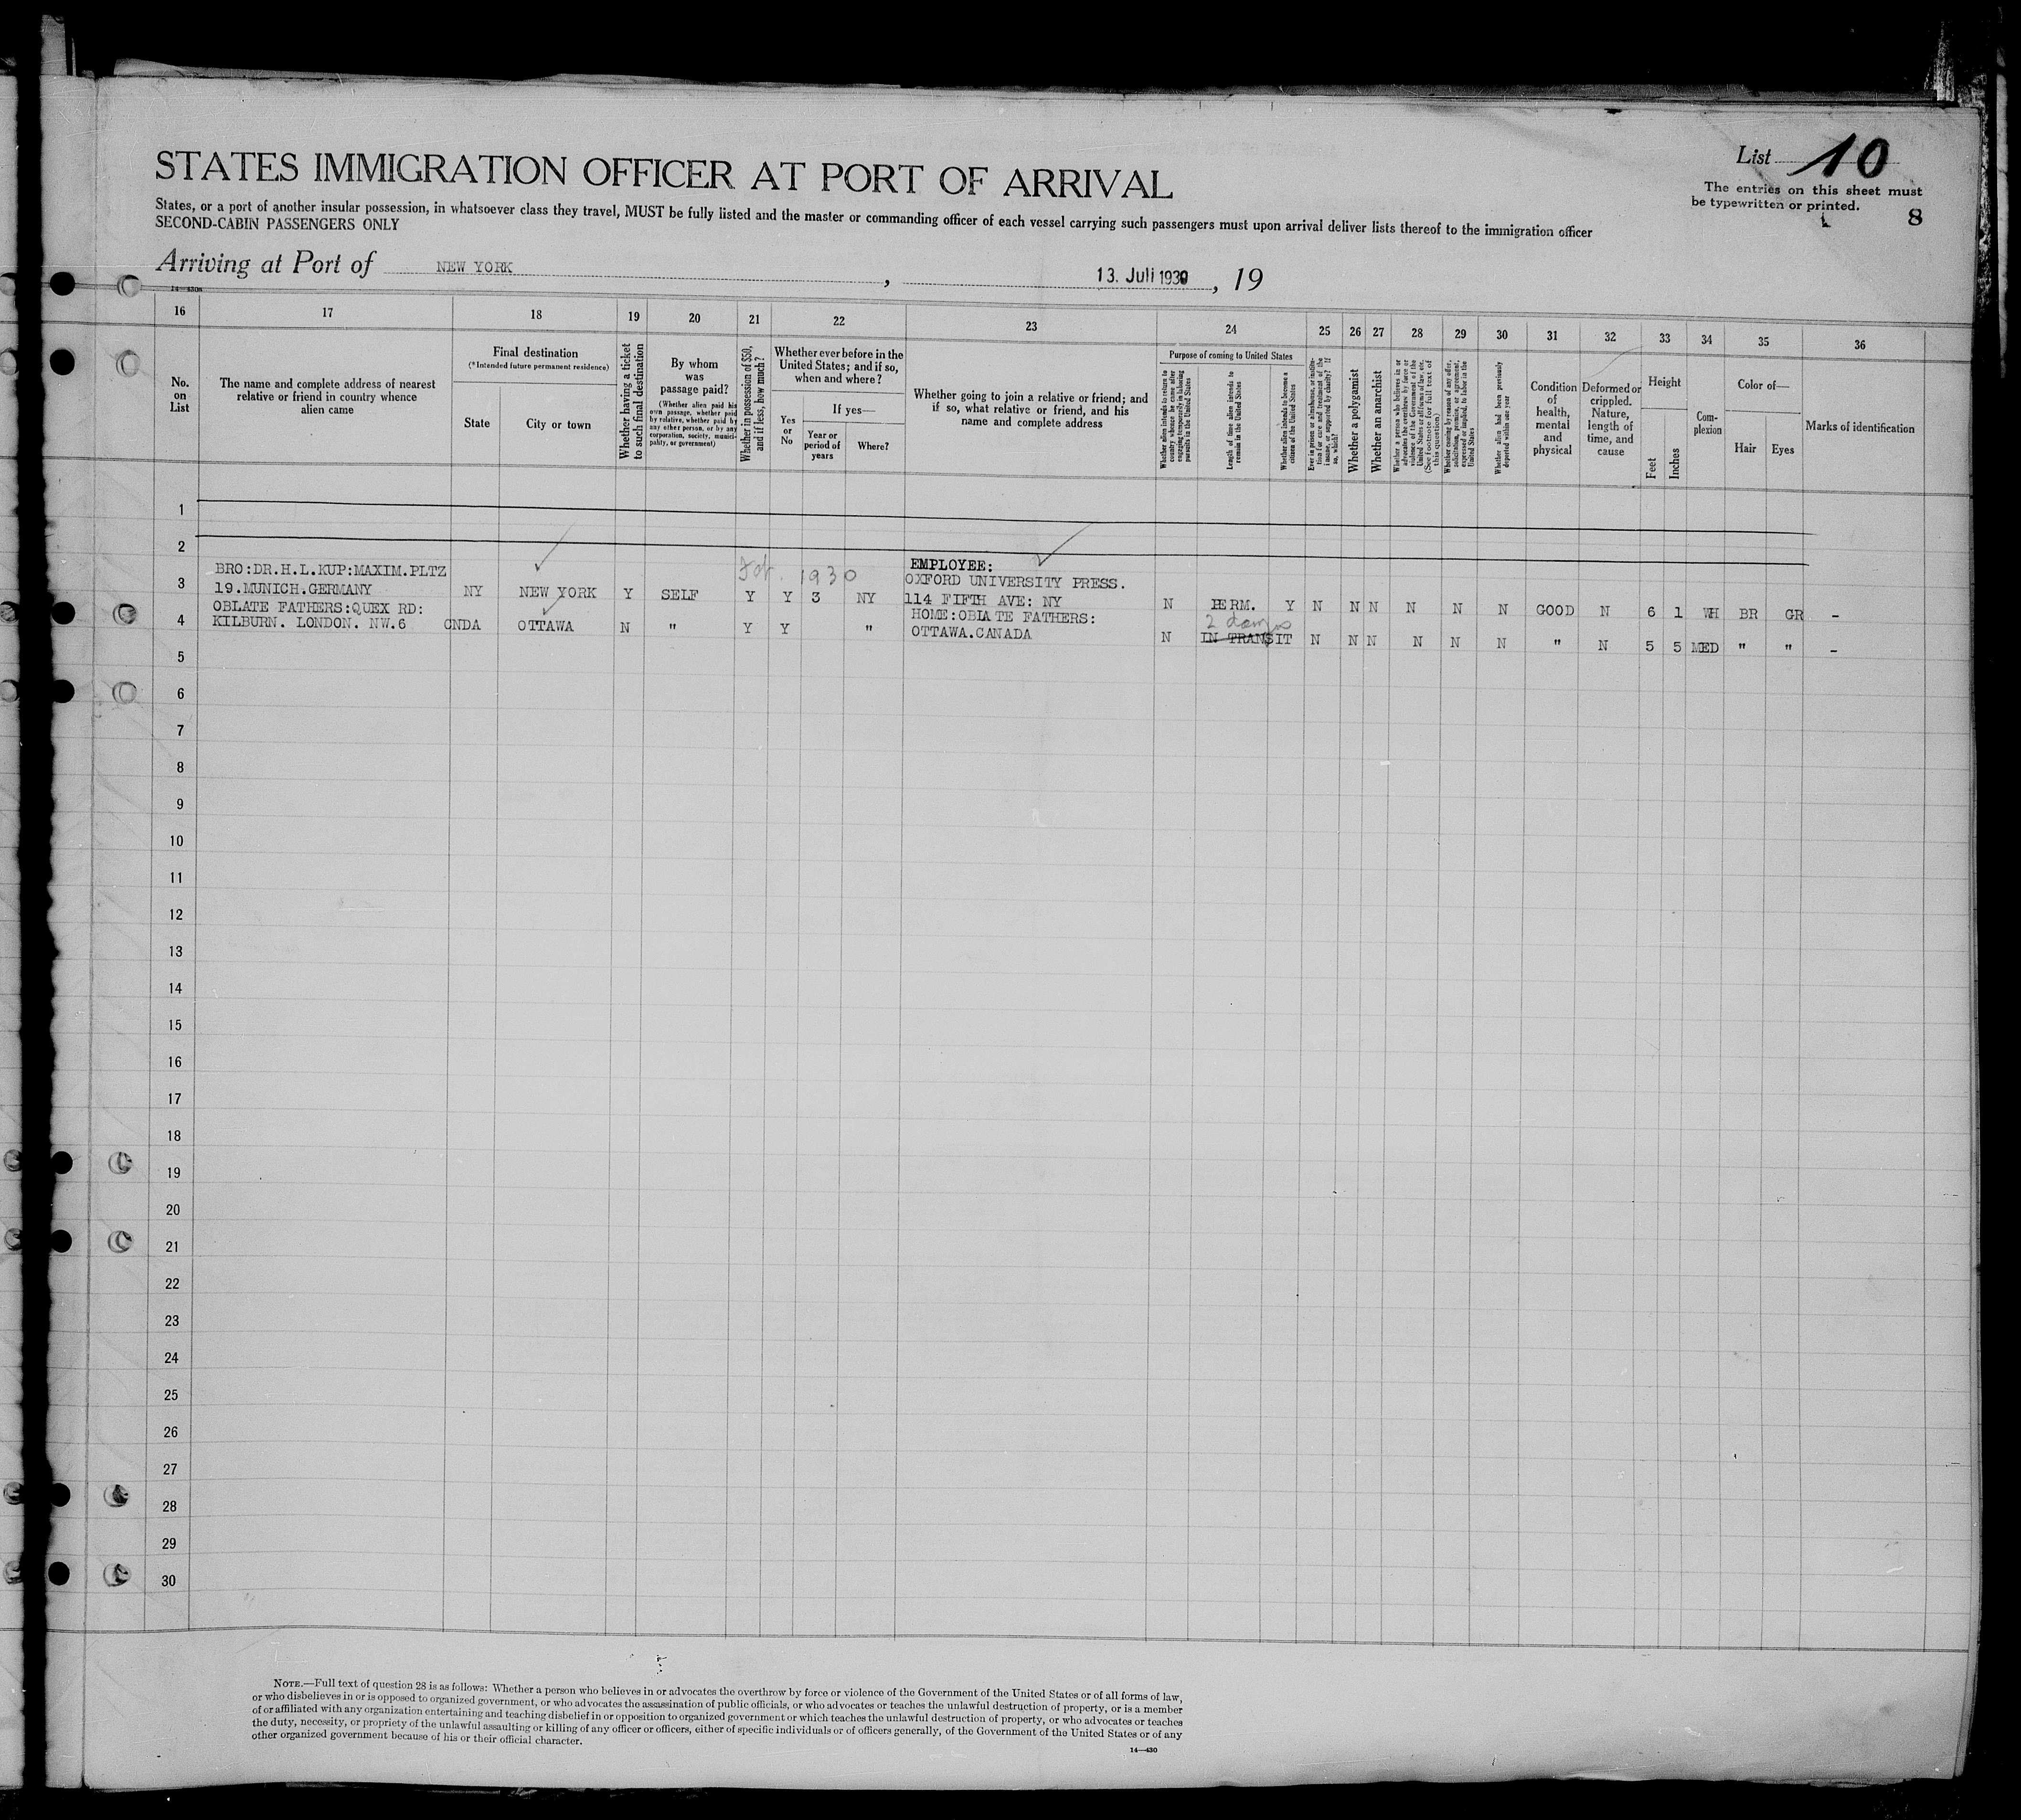 List 10
The entries on this sheet must
be typewritten or printed.
8
STATES IMMIGRATION OFFICER AT PORT OF ARRIVAL
States, or a port of another insular possession, in whatsoever class they travel, MUST be fully listed and the master or commanding officer of each vessel carrying such passengers must upon arrival deliver lists thereof to the immigration officer
SECOND-CABIN PASSENGERS ONLY
Arriving at Port of NEW YORK , 13. Juli 1930 , 19
16 17 18 19 20 21 22 23 24 25 26 27 28 29 30 31 32 33 34 35 36
No.
on
List
The name and complete address of nearest
relative or friend in country whence
alien came
Final destination
(*Intended future permanent residence)
State
City or town
Whether having a ticket
to such final destination
By whom
was
passage paid?
(Whether alien paid his
own passage, whether paid
by relative, whether paid by
any other person, or by any
corporation, society, munici-
pality, or government)
Whether in possession of $50,
and if less, how much?
Whether ever before in the
United States; and if so,
when and where?
Yes
or
No
If yes—
Year or
period of
years
Where?
Whether going to join a relative or friend; and
if so, what relative or friend, and his
name and complete address
Purpose of coming to United States
Whether alien intends to return to
country whence he came after
engaging temporarily in laboring
pursuits in the United States
Length of time alien intends to
remain in the United States
Whether alien intends to become a
citizen of the United States
Ever in prison or almshouse, or institu-
tion for care and treatment of the
insane, or supported by charity? If
so, which?
Whether a polygamist
Whether an anarchist
Whether a person who believes in or
advocates the overthrow by force or
violence of the Government of the
United States or all forms of law, etc.
(See footnote for full text of
this question)
Whether coming by reason of any offer,
solicitation, promise, or agreement,
expressed or implied, to labor in the
United States
Whether alien had been previously
deported within one year
Condition
of
health,
mental
and
physical
Deformed or
crippled.
Nature,
length of
time, and
cause
Height
Feet
Inches
Com-
plexion
Color of—
Hair
Eyes
Marks of identification
1
2
BRO:DR.H.L.KUP:MAXIM.PLTZ 1930 EMPLOYEE:
OXFORD UNIVERSITY PRESS.
3 19.MUNICH.GERMANY NY NEW YORK Y SELF Y Y 3 NY 114 FIFTH AVE: NY N PERM. Y N N N N N N GOOD N 6 1 WH BR GR -
OBLATE FATHERS:QUEX RD: HOME:OBLATE FATHERS:
2 days
4 KILBURN. LONDON. NW.6 CNDA OTTAWA N " Y Y " OTTAWA.CANADA N IN TRANSIT N N N N N N " N 5 5 MED " " -
5
6
7
8
9
10
11
12
13
14
15
16
17
18
19
20
21
22
23
24
25
26
27
28
29
30
NOTE.—Full text of question 28 is as follows: Whether a person who believes in or advocates the overthrow by force or violence of the Government of the United States or of all forms of law,
or who disbelieves in or is opposed to organized government, or who advocates the assassination of public officials, or who advocates or teaches the unlawful destruction of property, or is a member
of or affiliated with any organization entertaining and teaching disbelief in or opposition to organized government or which teaches the unlawful destruction of property, or who advocates or teaches
the duty, necessity, or propriety of the unlawful assaulting or killing of any officer or officers, either of specific individuals or of officers generally, of the Government of the United States or of any
other organized government because of his or their official character.
14—430